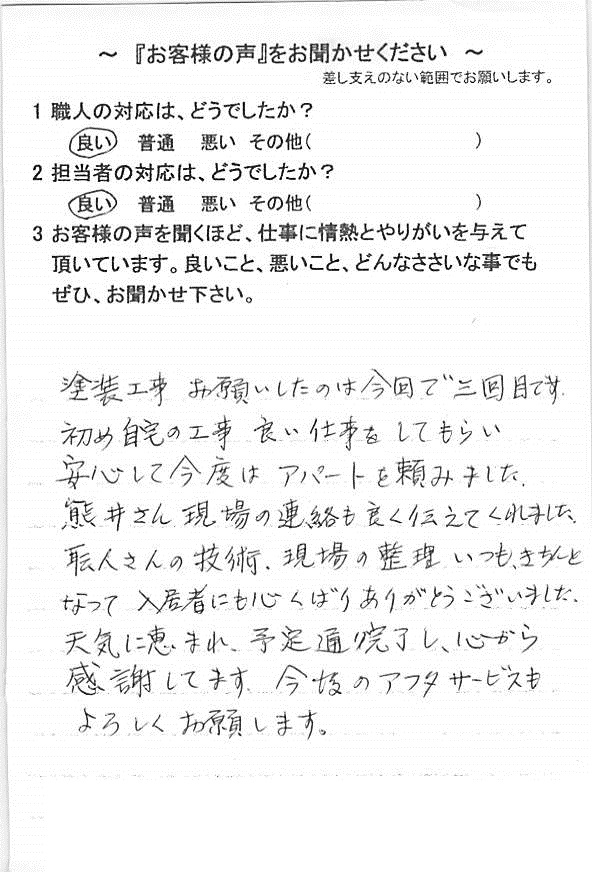 ～ 『お客様の声』をお聞かせください ～
差し支えのない範囲でお願いします。
1 職人の対応は、どうでしたか？
良い 普通 悪い その他( )
2 担当者の対応は、どうでしたか？
良い 普通 悪い その他( )
3 お客様の声を聞くほど、仕事に情熱とやりがいを与えて
頂いています。良いこと、悪いこと、どんなささいな事でも
ぜひ、お聞かせ下さい。
塗装工事 お願いしたのは今回で三回目です.
初め自宅の工事 良い仕事をしてもらい
安心して今度は アパートを頼みました.
熊井さん 現場の連絡も良く伝えてくれました.
職人さんの技術、現場の整理 いつも、きちんと
なって 入居者にも心くばりありがとうございました.
天気に恵まれ、予定通り完了し、心から
感謝してます 今後のアフタサービスも
よろしくお願します。